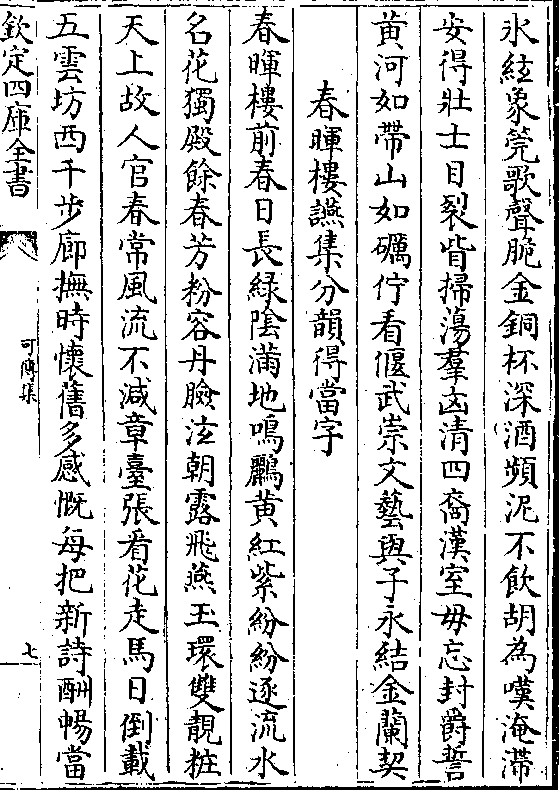 氷絃象筦歌聲脆金銅杯深酒頻泥不飲胡為嘆淹滯
安得壯士目裂眥掃蕩羣凶清四裔漢室毋忘封爵誓
黃河如帶山如礪佇看偃武崇文藝與子永結金蘭契
春暉樓讌集分韻得當字
春暉樓前春日長綠陰滿地鳴鸝黃紅紫紛紛逐流水
名花獨殿餘春芳粉容丹臉泣朝露飛燕玉環雙靚粧
天上故人官春常風流不減章臺張看花走馬日倒載
五雲坊西千步廊撫時懷舊多感慨每把新詩酬暢當
欽定四庫全書
可傳集
七